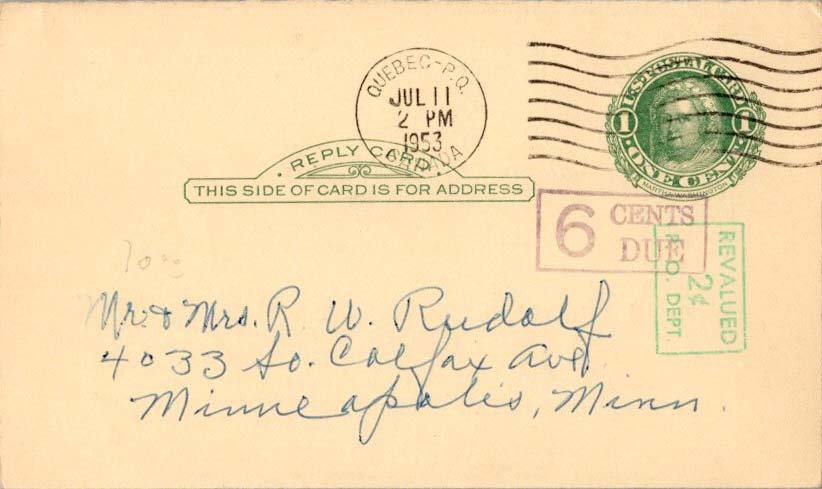 QUEBEC-P.Q.
JUL 11
2 PM
1953
CANADA
U.S. POSTAL CARD
1 1
ONE CENT
MARTHA WASHINGTON
REPLY CARD.
THIS SIDE OF CARD IS FOR ADDRESS
6 CENTS
DUE
REVALUED
2¢
P.O. DEPT.
Mr. & Mrs. R. W. Rudolf
4033 So. Colfax Ave.
Minneapolis, Minn.